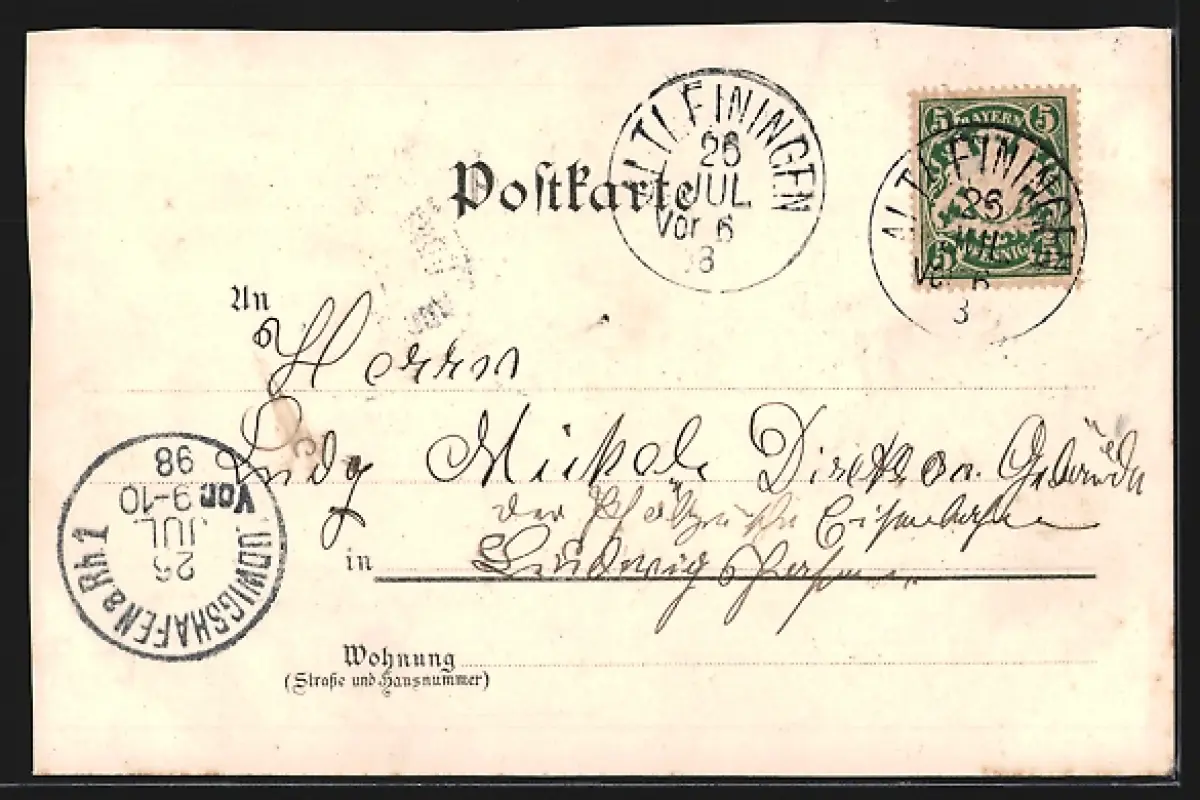 Postkarte
ALTLEININGEN
26
JUL
Vor 6
98
BAYERN
5 5
5 PFENNIG
ALTLEININGEN
26
JUL
Vor 6
An
Herrn
Ludg Mickel Direktor Gebäude
der Pfälzische Eisenbahn
in Ludwigshafen
LUDWIGSHAFEN a. Rh. 1
26
JUL.
Vor 9-10
98
Wohnung
(Straße und Hausnummer)